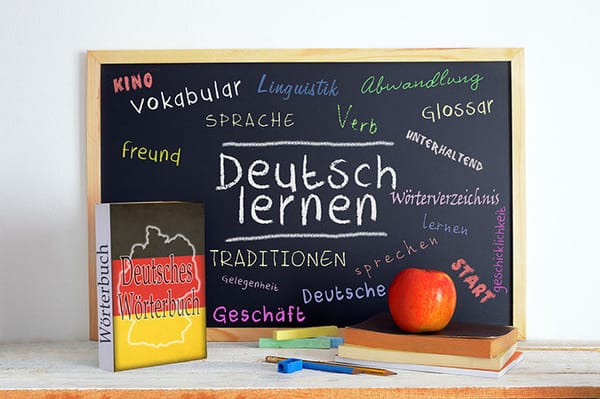 KINO
Vokabular
Linguistik
Abwandlung
SPRACHE
Verb
Glossar
freund
UNTERHALTEND
Deutsch
lernen
Wörterverzeichnis
lernen
geschicklichkeit
TRADITIONEN
sprechen
Gelegenheit
Deutsche
START
Geschäft
Wörterbuch
Deutsches
Wörterbuch